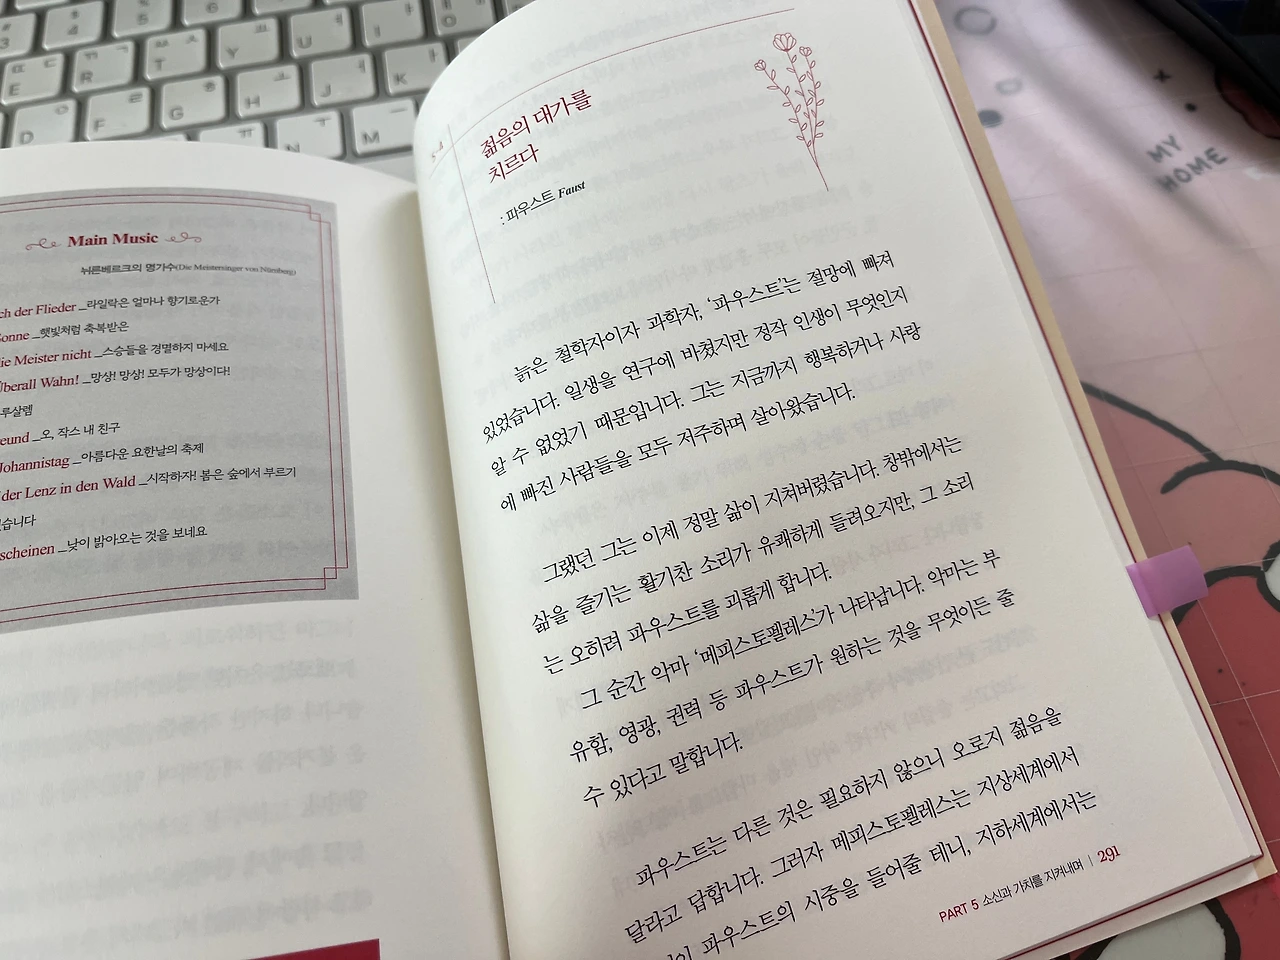 Main Music
뉘른베르크의 명가수(Die Meistersinger von Nürnberg)
ch der Flieder _라일락은 얼마나 향기로운가
Sonne _햇빛처럼 축복받은
die Meister nicht _스승들을 경멸하지 마세요
Überall Wahn! _망상! 망상! 모두가 망상이다!
루살렘
reund _오, 작스 내 친구
Johannistag _아름다운 요한날의 축제
der Lenz in den Wald _시작하자! 봄은 숲에서 부르기
습니다
scheinen _낮이 밝아오는 것을 보네요
젊음의 대가를
치르다
: 파우스트 Faust
늙은 철학자이자 과학자, ‘파우스트’는 절망에 빠져
있었습니다. 일생을 연구에 바쳤지만 정작 인생이 무엇인지
알 수 없었기 때문입니다. 그는 지금까지 행복하거나 사랑
에 빠진 사람들을 모두 저주하며 살아왔습니다.
그랬던 그는 이제 정말 삶이 지쳐버렸습니다. 창밖에서는
삶을 즐기는 활기찬 소리가 유쾌하게 들려오지만, 그 소리
는 오히려 파우스트를 괴롭게 합니다.
그 순간 악마 ‘메피스토펠레스’가 나타납니다. 악마는 부
유함, 영광, 권력 등 파우스트가 원하는 것을 무엇이든 줄
수 있다고 말합니다.
파우스트는 다른 것은 필요하지 않으니 오로지 젊음을
달라고 답합니다. 그러자 메피스토펠레스는 지상세계에서
파우스트의 시중을 들어줄 테니, 지하세계에서는
PART 5 소신과 가치를 지켜내며 | 291
MY
HOME
4
5
6
E
R
T
Y
U
I
O
D
F
G
H
J
K
N
M